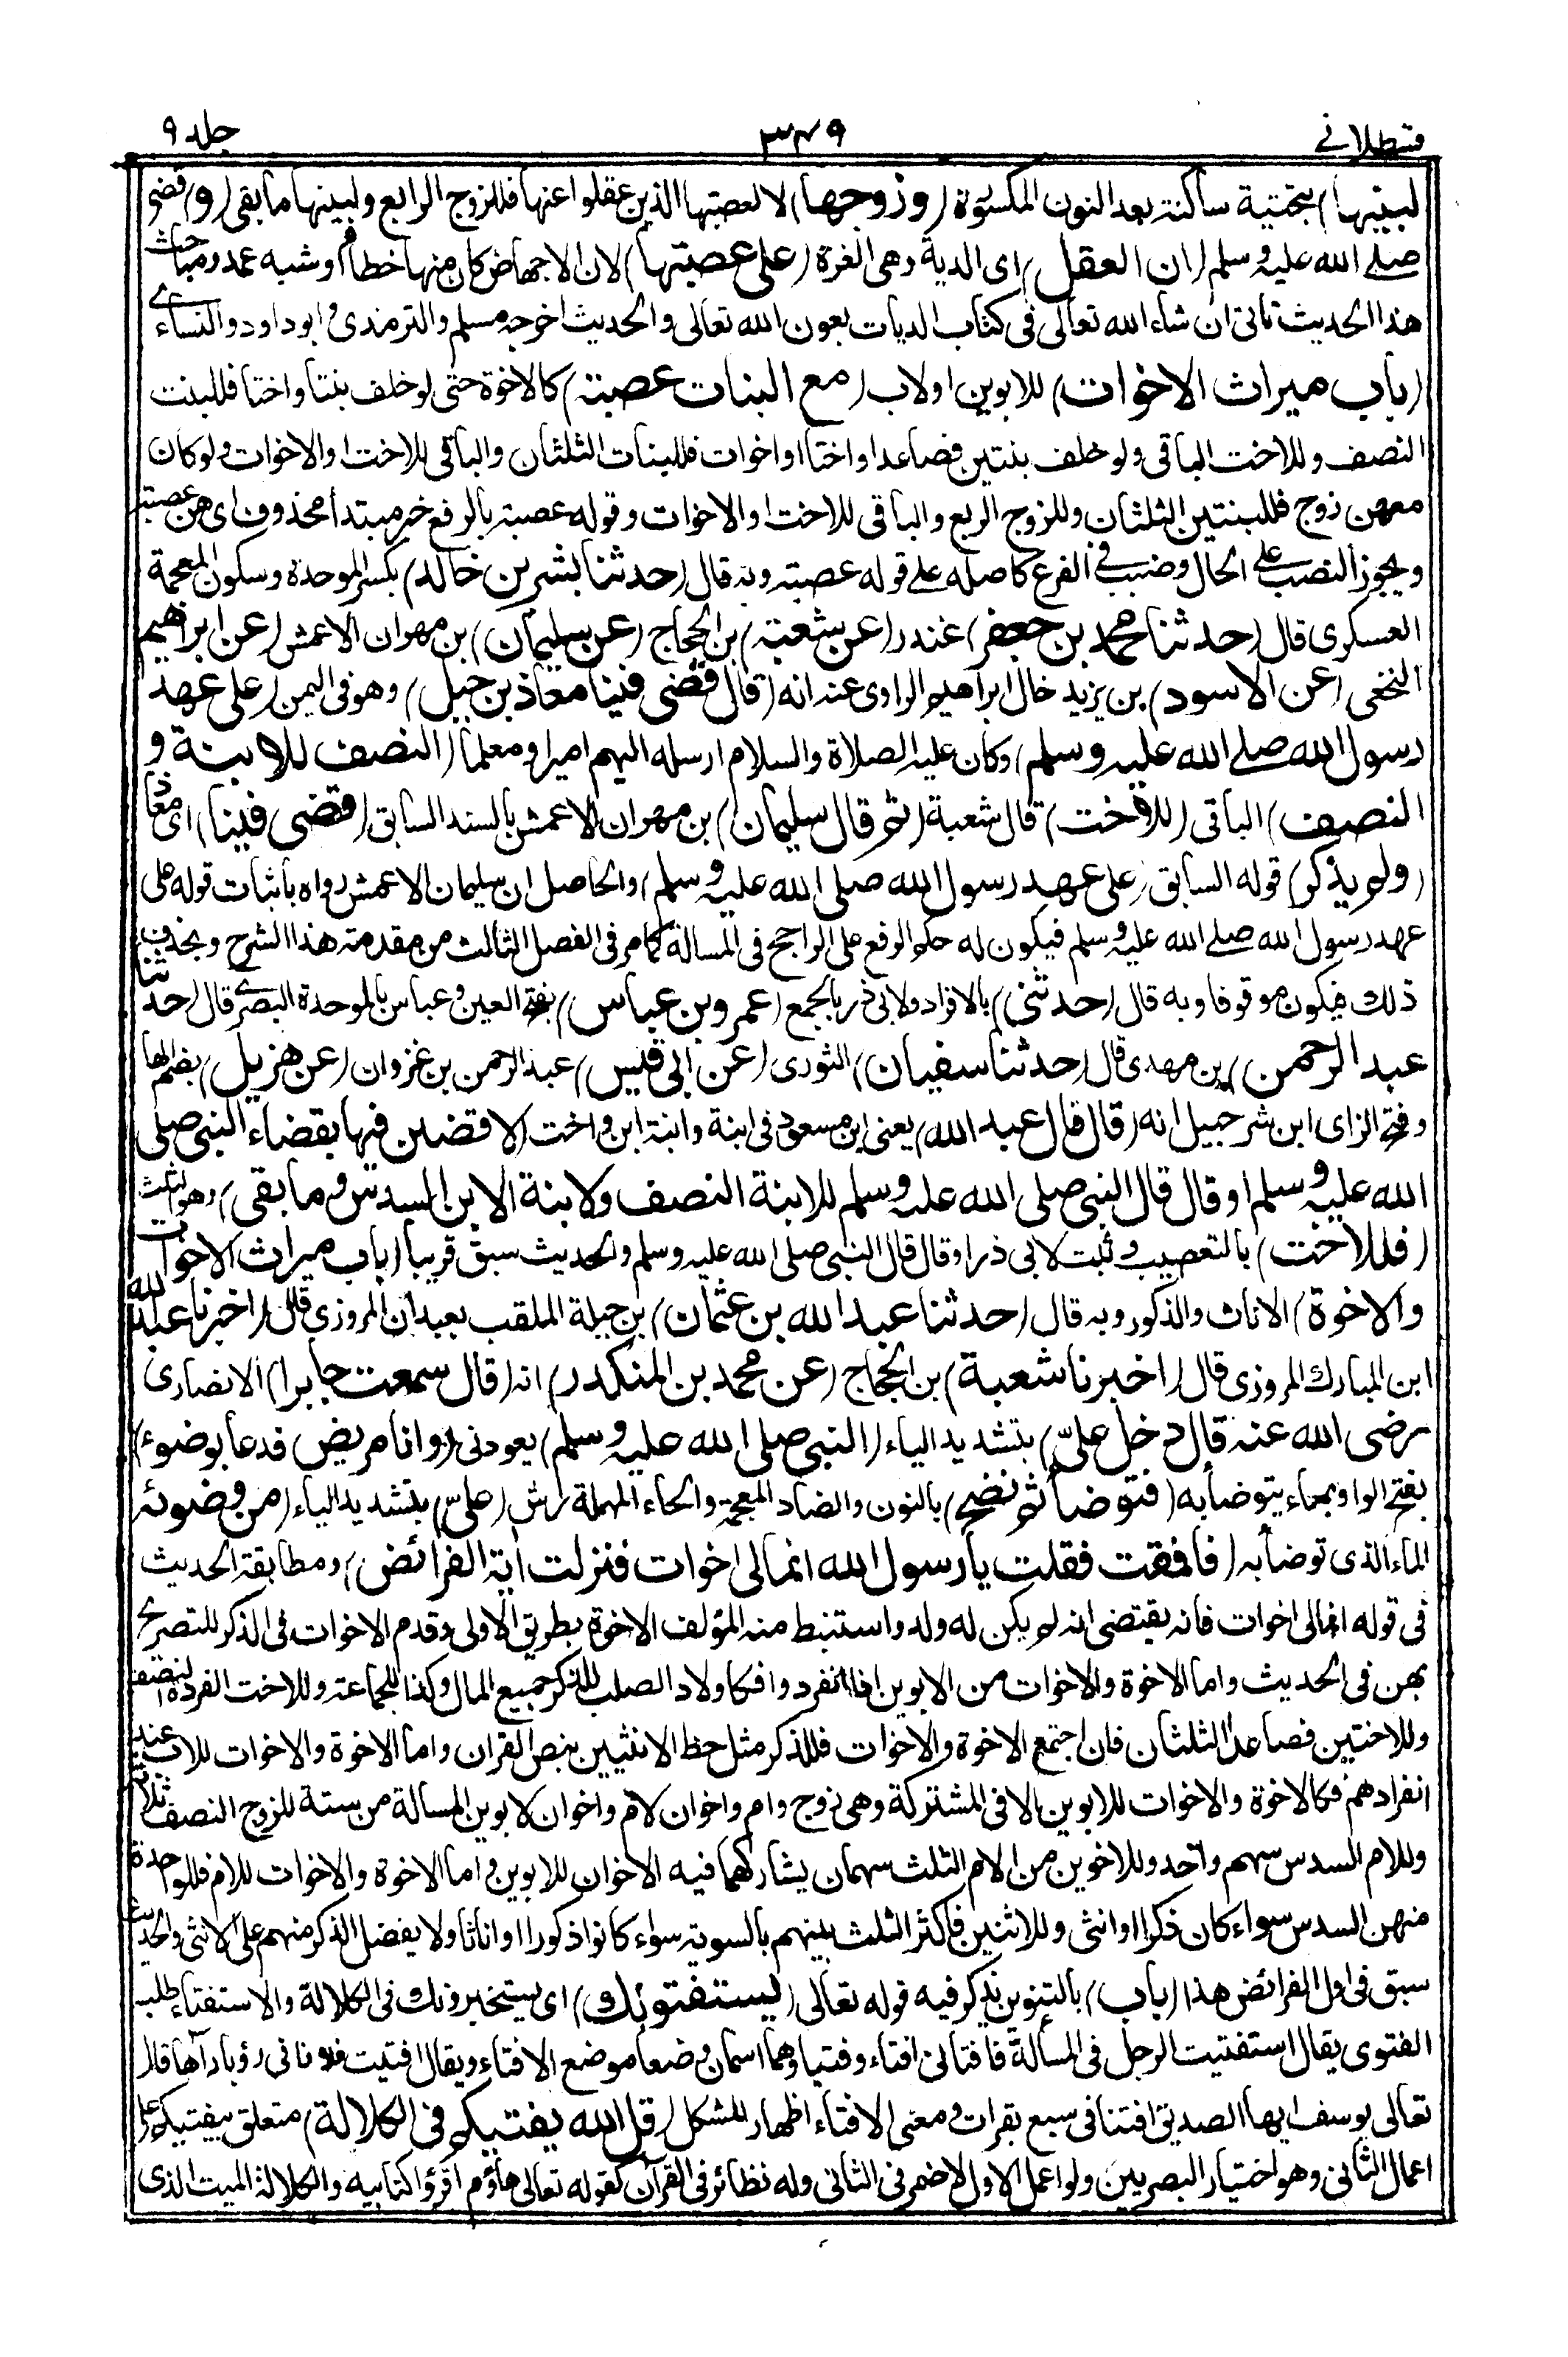 قسطلاني ٣٤٩ جلد ٩
لبنيها) بتحتية ساكنة بعد النون المكسورة (وزوجها) لا لعصبتها الذين عقلوا عنها فللزوج الرابع ولبنيها ما بقى (و) قضى
صلى الله عليه وسلم (ان العقل) اى الدية وهى الغرة (على عصبتها) لان الاجهاض كان منها خطأ او شبه عمد ومباحث
هذا الحديث تاتى ان شاء الله تعالى فى كتاب الديات بعون الله تعالى والحديث اخرجه مسلم والترمذى وابو داود والنساءى
(باب ميراث الاخوات) للابوين او لاب (مع البنات عصبة) كالاخوة حتى لو خلف بنتا واختا فللبنت
النصف وللاخت الباقى ولو خلف بنتين فصاعدا واختا او اخوات فللبنات الثلثان والباقى للاخت او الاخوات ولو كان
معهن زوج فللبنتين الثلثان وللزوج الربع والباقى للاخت او الاخوات وقوله عصبة بالرفع خبر مبتدأ محذوف اى هن عصبة
ويجوز النصب على الحال وضبب فى الفرع كاصله على قوله عصبة وبه قال (حدثنا بشر بن خالد) بكسر الموحدة وسكون المعجمة
العسكرى قال (حدثنا محمد بن جعفر) غندر (عن شعبة) بن الحجاج (عن سليمان) بن مهران الاعمش (عن ابراهيم
النخعى (عن الاسود) بن يزيد خال ابراهيم الراوى عنه انه (قال قضى فينا معاذ بن جبل) وهو فى اليمن (على عهد
رسول الله صلى الله عليه وسلم) وكان عليه الصلاة والسلام ارسله اليهم اميرا ومعلما (النصف للابنة و
النصف) الباقى (للاخت) قال شعبة (ثم قال سليمان) بن مهران الاعمش بالسند السابق (قضى فينا) اى معاذ
(ولم يذكر) قوله السابق (على عهد رسول الله صلى الله عليه وسلم) والحاصل ان سليمان الاعمش رواه باثبات قوله على
عهد رسول الله صلى الله عليه وسلم فيكون له حكم الرفع على الراجح فى المسالة كما مر فى الفصل الثالث من مقدمة هذا الشرح وبحذف
ذلك فيكون موقوفا وبه قال (حدثنى) بالافراد ولابى ذر بالجمع (عمرو بن عباس) بفتح العين وعباس بالموحدة البصرى قال (حدثنا
عبد الرحمن) بن مهدى قال (حدثنا سفيان) الثورى (عن ابى قيس) عبد الرحمن بن غزوان (عن هزيل) بضم الها
وفتح الزاى ابن شرحبيل انه (قال قال عبد الله) يعنى ابن مسعود فى ابنة وابنة ابن واخت (لاقضين فيها بقضاء النبى صلى
الله عليه وسلم او قال قال النبى صلى الله عليه وسلم للابنة النصف ولابنة الابن السدس وما بقى) وهو الثلث
(فللاخت) بالتعصيب وثبت لابى ذر او قال قال النبى صلى الله عليه وسلم والحديث سبق قريبا (باب ميراث الاخوات
والاخوة) الاناث والذكور وبه قال (حدثنا عبد الله بن عثمان) بن جبلة الملقب بعبدان المروزى قال (اخبرنا عبد الله
ابن المبارك المروزى قال (اخبرنا شعبة) بن الحجاج (عن محمد بن المنكدر) انه (قال سمعت جابرا) الانصارى
رضى الله عنه قال دخل علىّ) بتشديد الياء (النبى صلى الله عليه وسلم) يعودنى (وانا مريض فدعا بوضوء)
بفتح الواو بماء يتوضأ به (فتوضأ ثم نضح) بالنون والضاد المعجمة والحاء المهملة رش (علىّ) بتشديد الياء (من وضوئه
الماء الذى توضأ به (فافقت فقلت يا رسول الله انما لى اخوات فنزلت اية الفرائض) ومطابقة الحديث
فى قوله انما لى اخوات فانه يقتضى انه لم يكن له ولد واستنبط منه المؤلف الاخوة بطريق الاولى وقدم الاخوات فى الذكر للتصريح
بهن فى الحديث واما الاخوة والاخوات من الابوين اذا انفردوا فكاولاد الصلب للذكر جميع المال وكذا للجماعة وللاخت الفردة النصف
وللاختين فصاعدا الثلثان فان اجتمع الاخوة والاخوات فللذكر مثل حظ الانثيين بنص القران واما الاخوة والاخوات للاب عند
انفرادهم فكالاخوة والاخوات للابوين الا فى المشتركة وهى زوج وام واخوان لام واخوان لابوين المسالة من ستة للزوج النصف ثلاثة
وللام السدس سهم واحد وللاخوين من الام الثلث سهمان يشاركهما فيه الاخوان للابوين واما الاخوة والاخوات للام فللواحدة
منهن السدس سواء كان ذكرا او انثى وللاثنين فاكثر الثلث بينهم بالسوية سواء كانوا ذكورا او اناثا ولا يفضل الذكر منهم على الانثى والحديث
سبق فى اول الفرائض هذا (باب) بالتنوين يذكر فيه قوله تعالى (يستفتونك) اى يستخبرونك فى الكلالة والاستفتاء طلب
الفتوى يقال استفتيت الرجل فى المسألة فافتانى افتاء وفتيا وهما اسمان وضعا موضع الافتاء ويقال افتيت فلانا فى رؤيا رآها قال
تعالى يوسف ايها الصديق افتنا فى سبع بقرات ومعنى الافتاء اظهار المشكل (قل الله يفتيكم فى الكلالة) متعلق بيفتيكم على
اعمال الثانى وهو اختيار البصريين ولو اعمل الاول لاضمر فى الثانى وله نظائر فى القرآن كقوله تعالى هاؤم اقرؤا كتابيه والكلالة الميت الذى